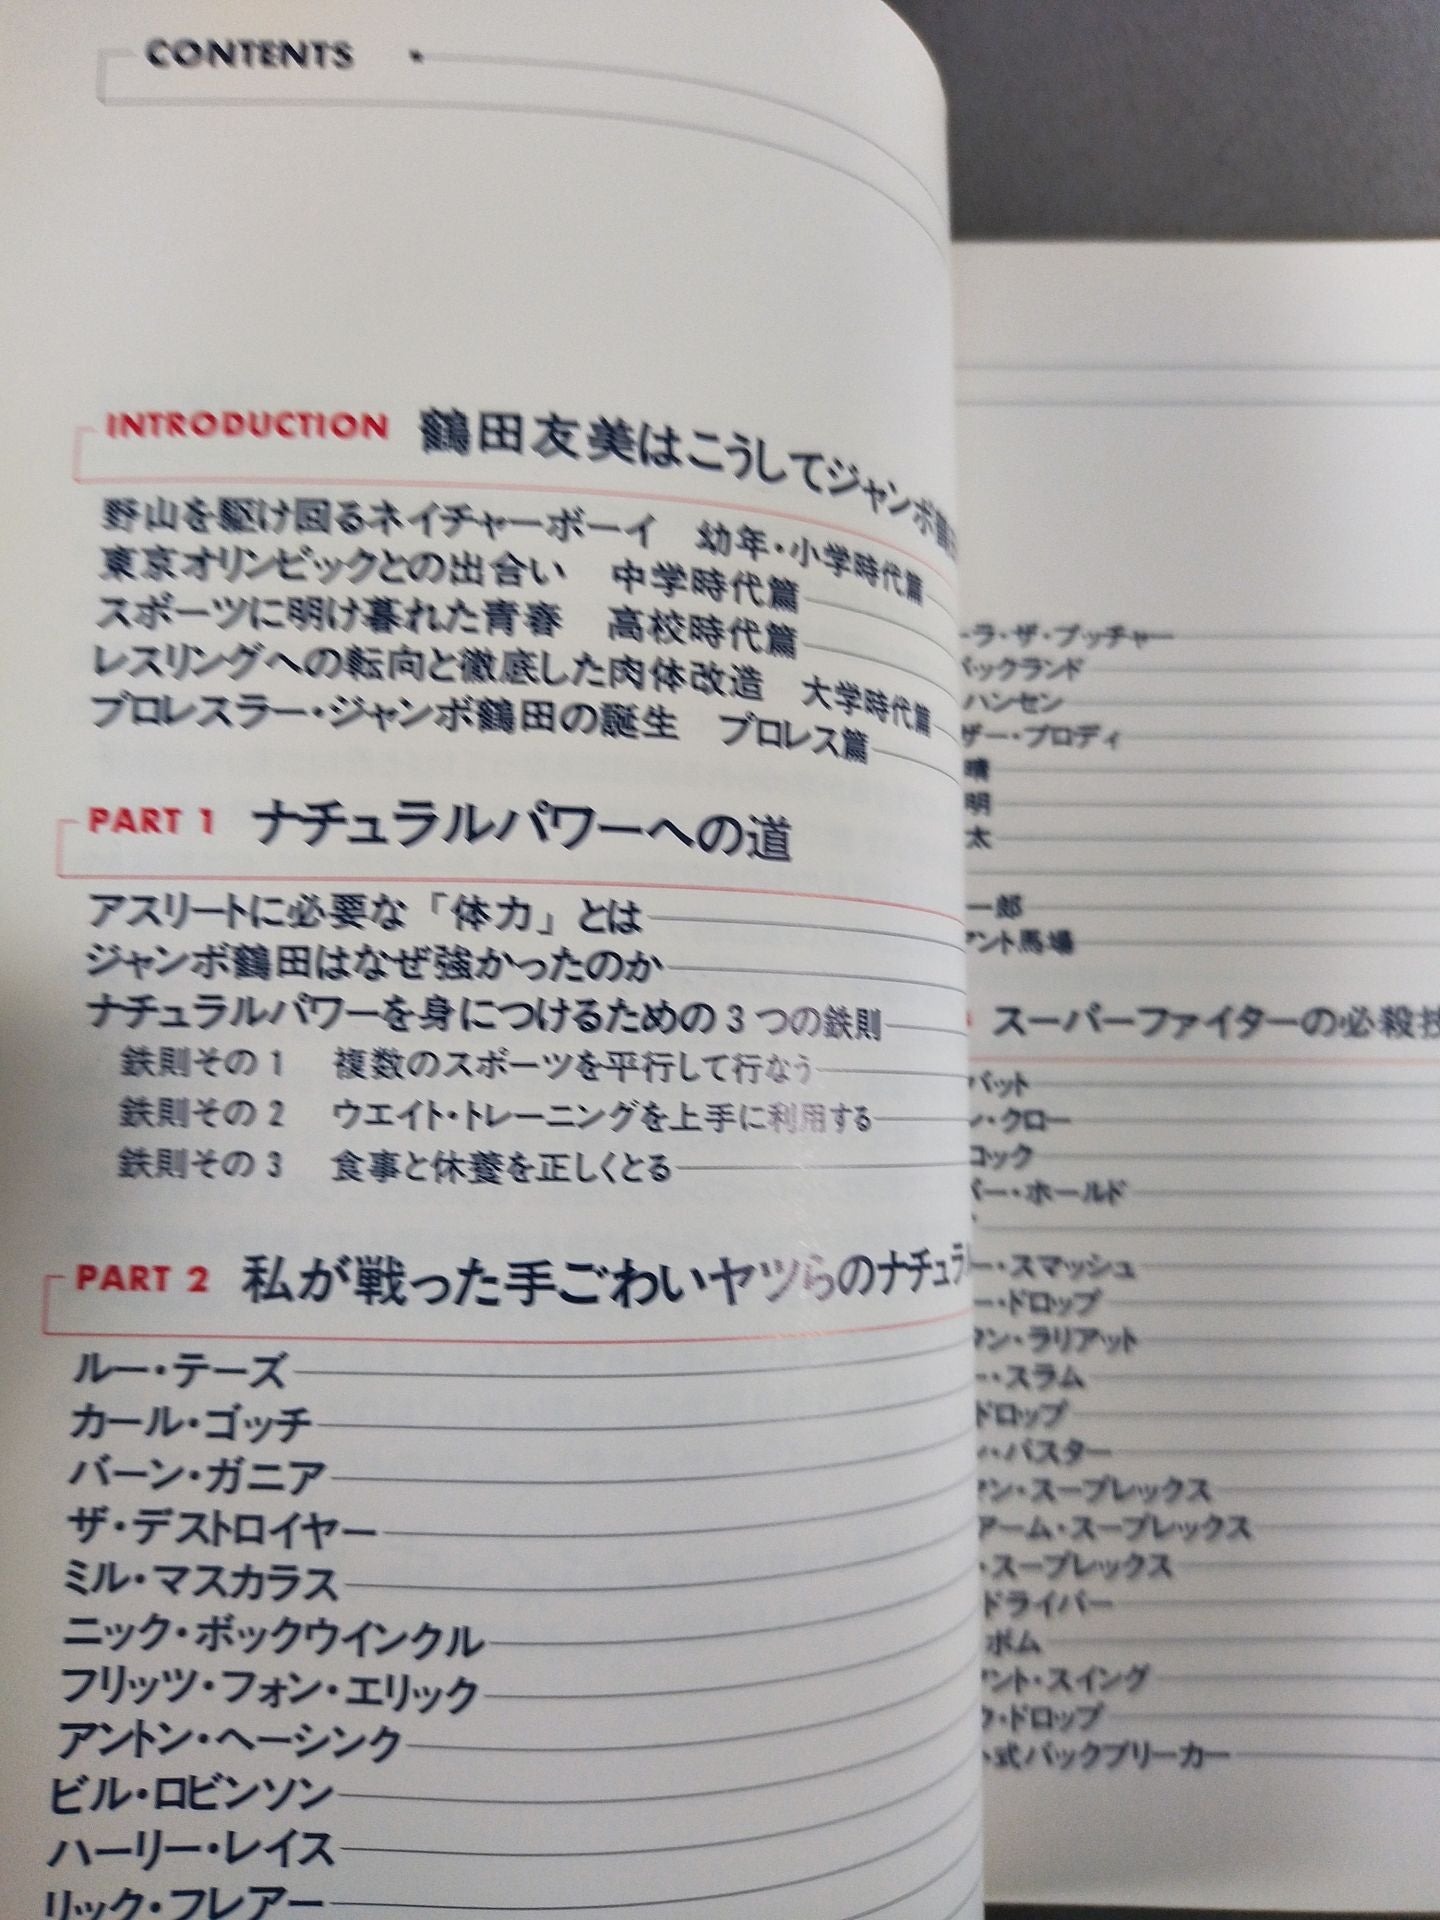 CONTENTS
INTRODUCTION 鶴田友美はこうしてジャンボ鶴
野山を駆け回るネイチャーボーイ 幼年・小学時代篇
東京オリンピックとの出合い 中学時代篇
スポーツに明け暮れた青春 高校時代篇
レスリングへの転向と徹底した肉体改造 大学時代篇
プロレスラー・ジャンボ鶴田の誕生 プロレス篇
PART 1 ナチュラルパワーへの道
アスリートに必要な「体力」とは
ジャンボ鶴田はなぜ強かったのか
ナチュラルパワーを身につけるための3つの鉄則
鉄則その1 複数のスポーツを平行して行なう
鉄則その2 ウエイト・トレーニングを上手に利用する
鉄則その3 食事と休養を正しくとる
PART 2 私が戦った手ごわいヤツらのナチュラ
ルー・テーズ
カール・ゴッチ
バーン・ガニア
ザ・デストロイヤー
ミル・マスカラス
ニック・ボックウインクル
フリッツ・フォン・エリック
アントン・ヘーシンク
ビル・ロビンソン
ハーリー・レイス
リック・フレアー
ーラ・ザ・ブッチャー
バックランド
ハンセン
ザー・ブロディ
晴
明
太
一郎
アント馬場
スーパーファイターの必殺技
バット
ン・クロー
ロック
バー・ホールド
ー・スマッシュ
ー・ドロップ
タン・ラリアット
ー・スラム
ドロップ
ン・バスター
マン・スープレックス
アーム・スープレックス
・スープレックス
ドライバー
ボム
アント・スイング
ク・ドロップ
ト式バックブリーカー